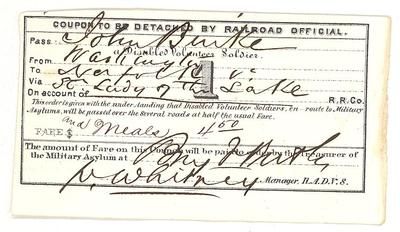 COUPON TO BE DETACHED BY RAILROAD OFFICIAL.
Pass John Burke
a Disabled Volunteer Soldier.
From Washington
To Norfolk Va
Via Str Lady of the Lake
On account of R.R.Co.
This order is given with the understanding that Disabled Volunteer Soldiers, en route to Military
Asylums, will be passed over the several roads at half the usual Fare.
and Meals 4 50
FARE $
The amount of Fare on this Coupon will be paid to order by the Treasurer
of the Military Asylum at
D. Whitney
Manager, R.A.D.V.S.